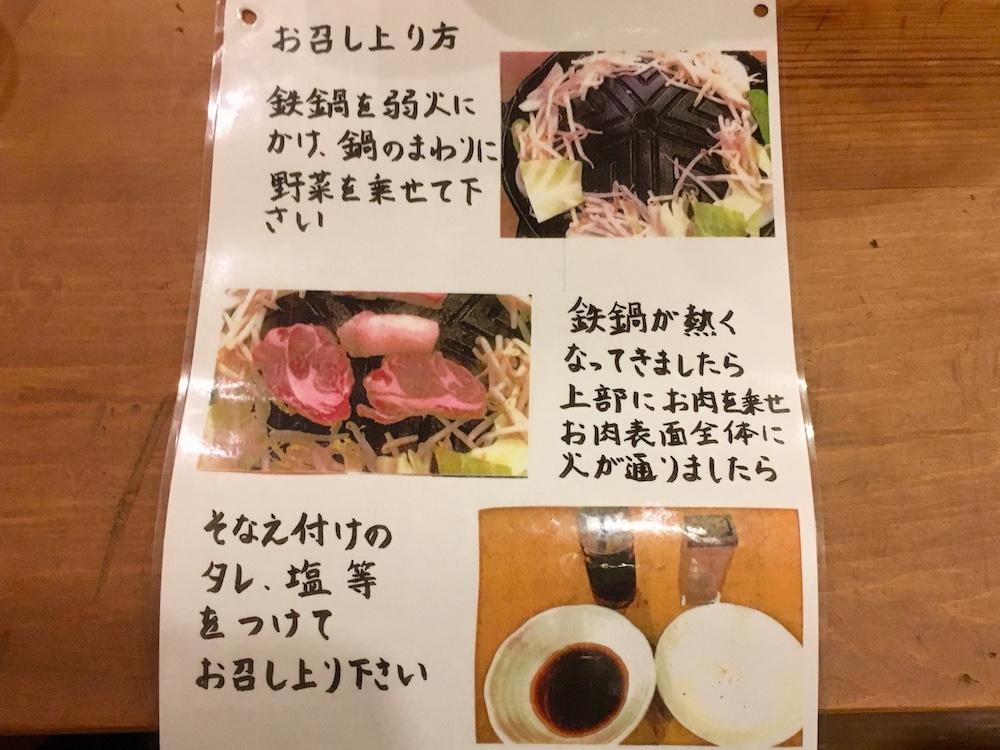 お召し上り方
鉄鍋を弱火に
かけ、鍋のまわりに
野菜を乗せて下
さい
鉄鍋が熱く
なってきましたら
上部にお肉を乗せ
お肉表面全体に
火が通りましたら
そなえ付けの
タレ、塩 等
をつけて
お召し上り下さい